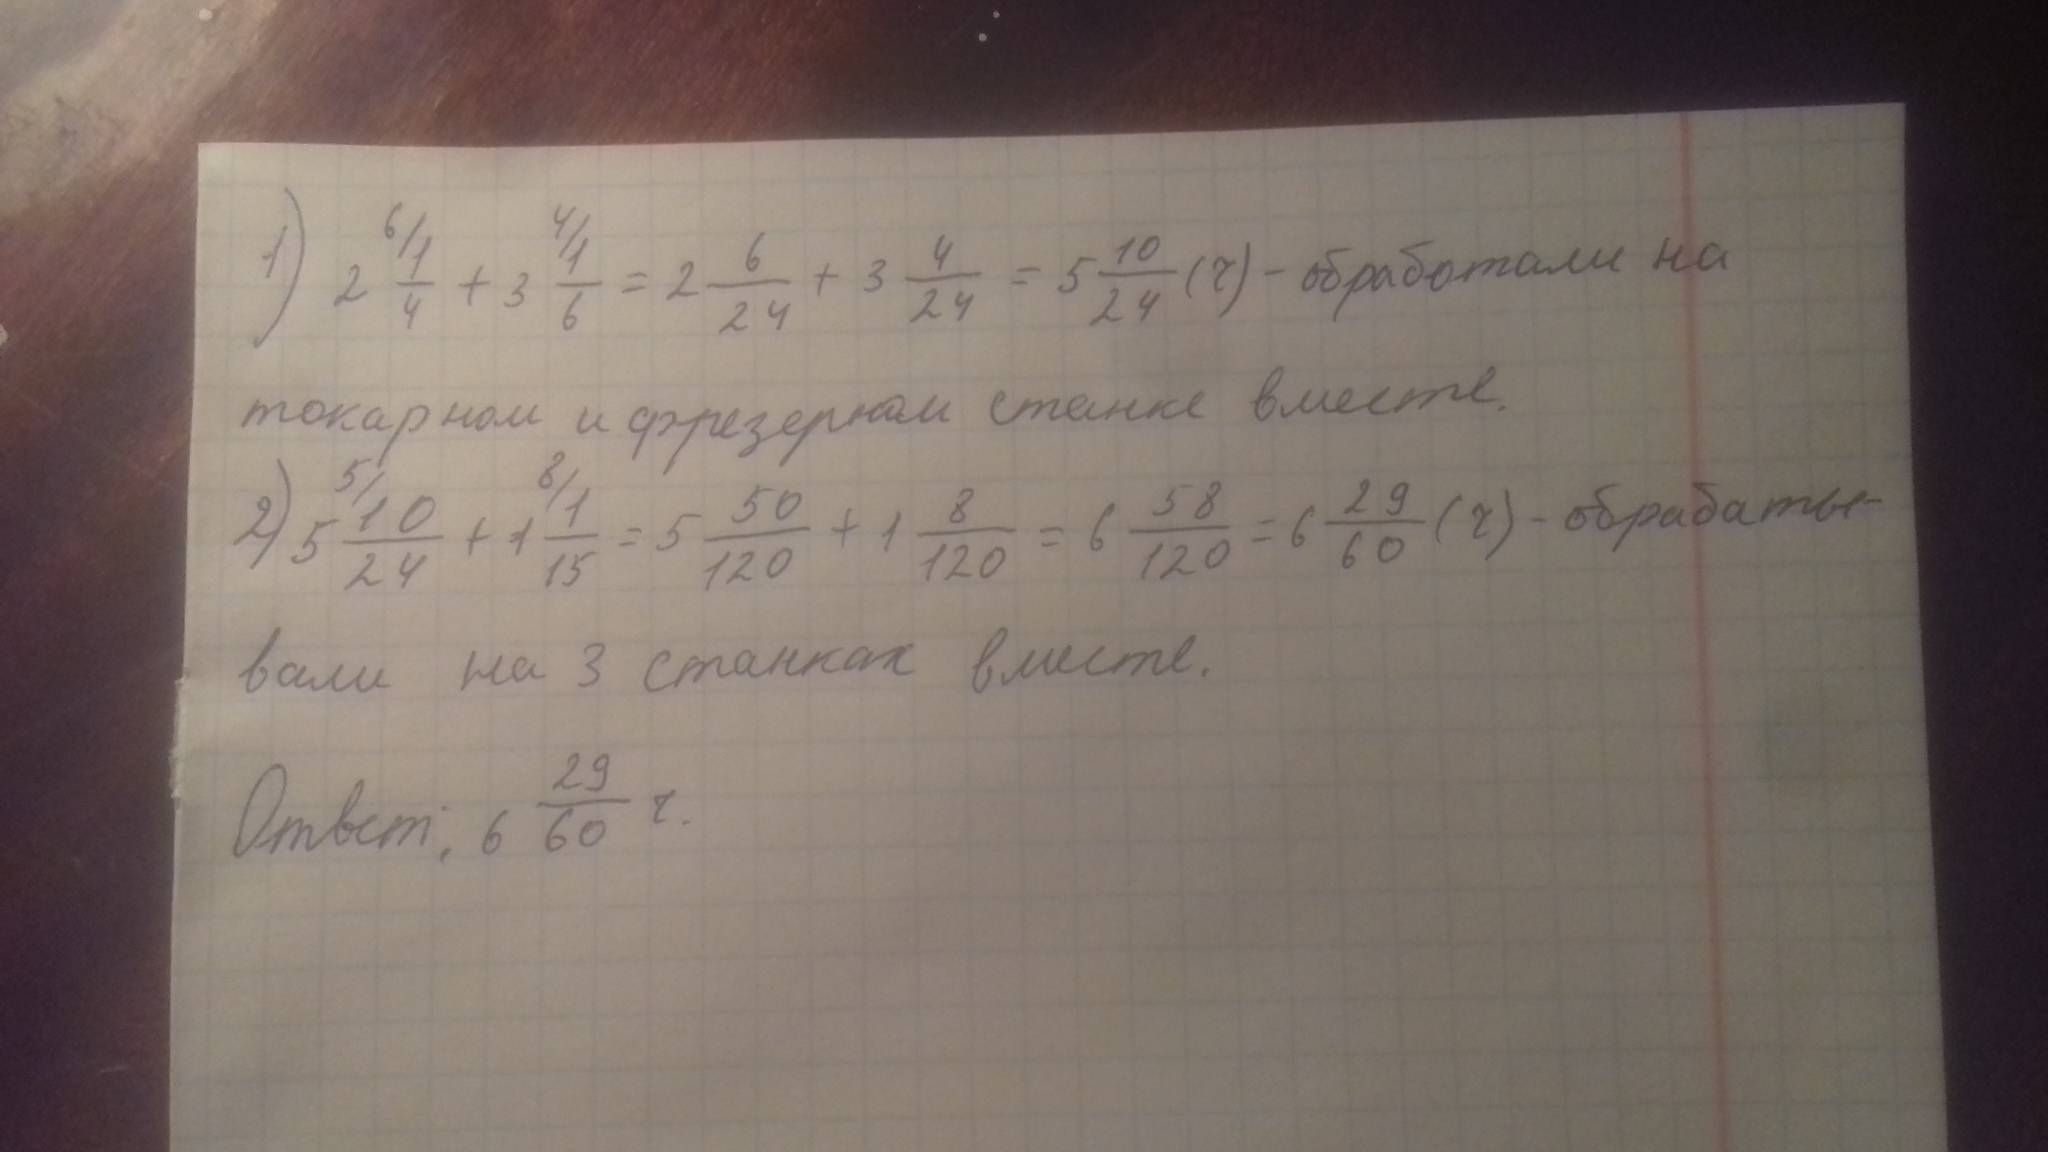 1) 2 6/1/4 + 3 4/1/6 = 2 6/24 + 3 4/24 = 5 10/24 (ч) - обработали на
токарном и фрезерном станке вместе.
2) 5 5/10/24 + 1 8/1/15 = 5 50/120 + 1 8/120 = 6 58/120 = 6 29/60 (ч) - обрабаты-
вали на 3 станках вместе.
Ответ: 6 29/60 ч.